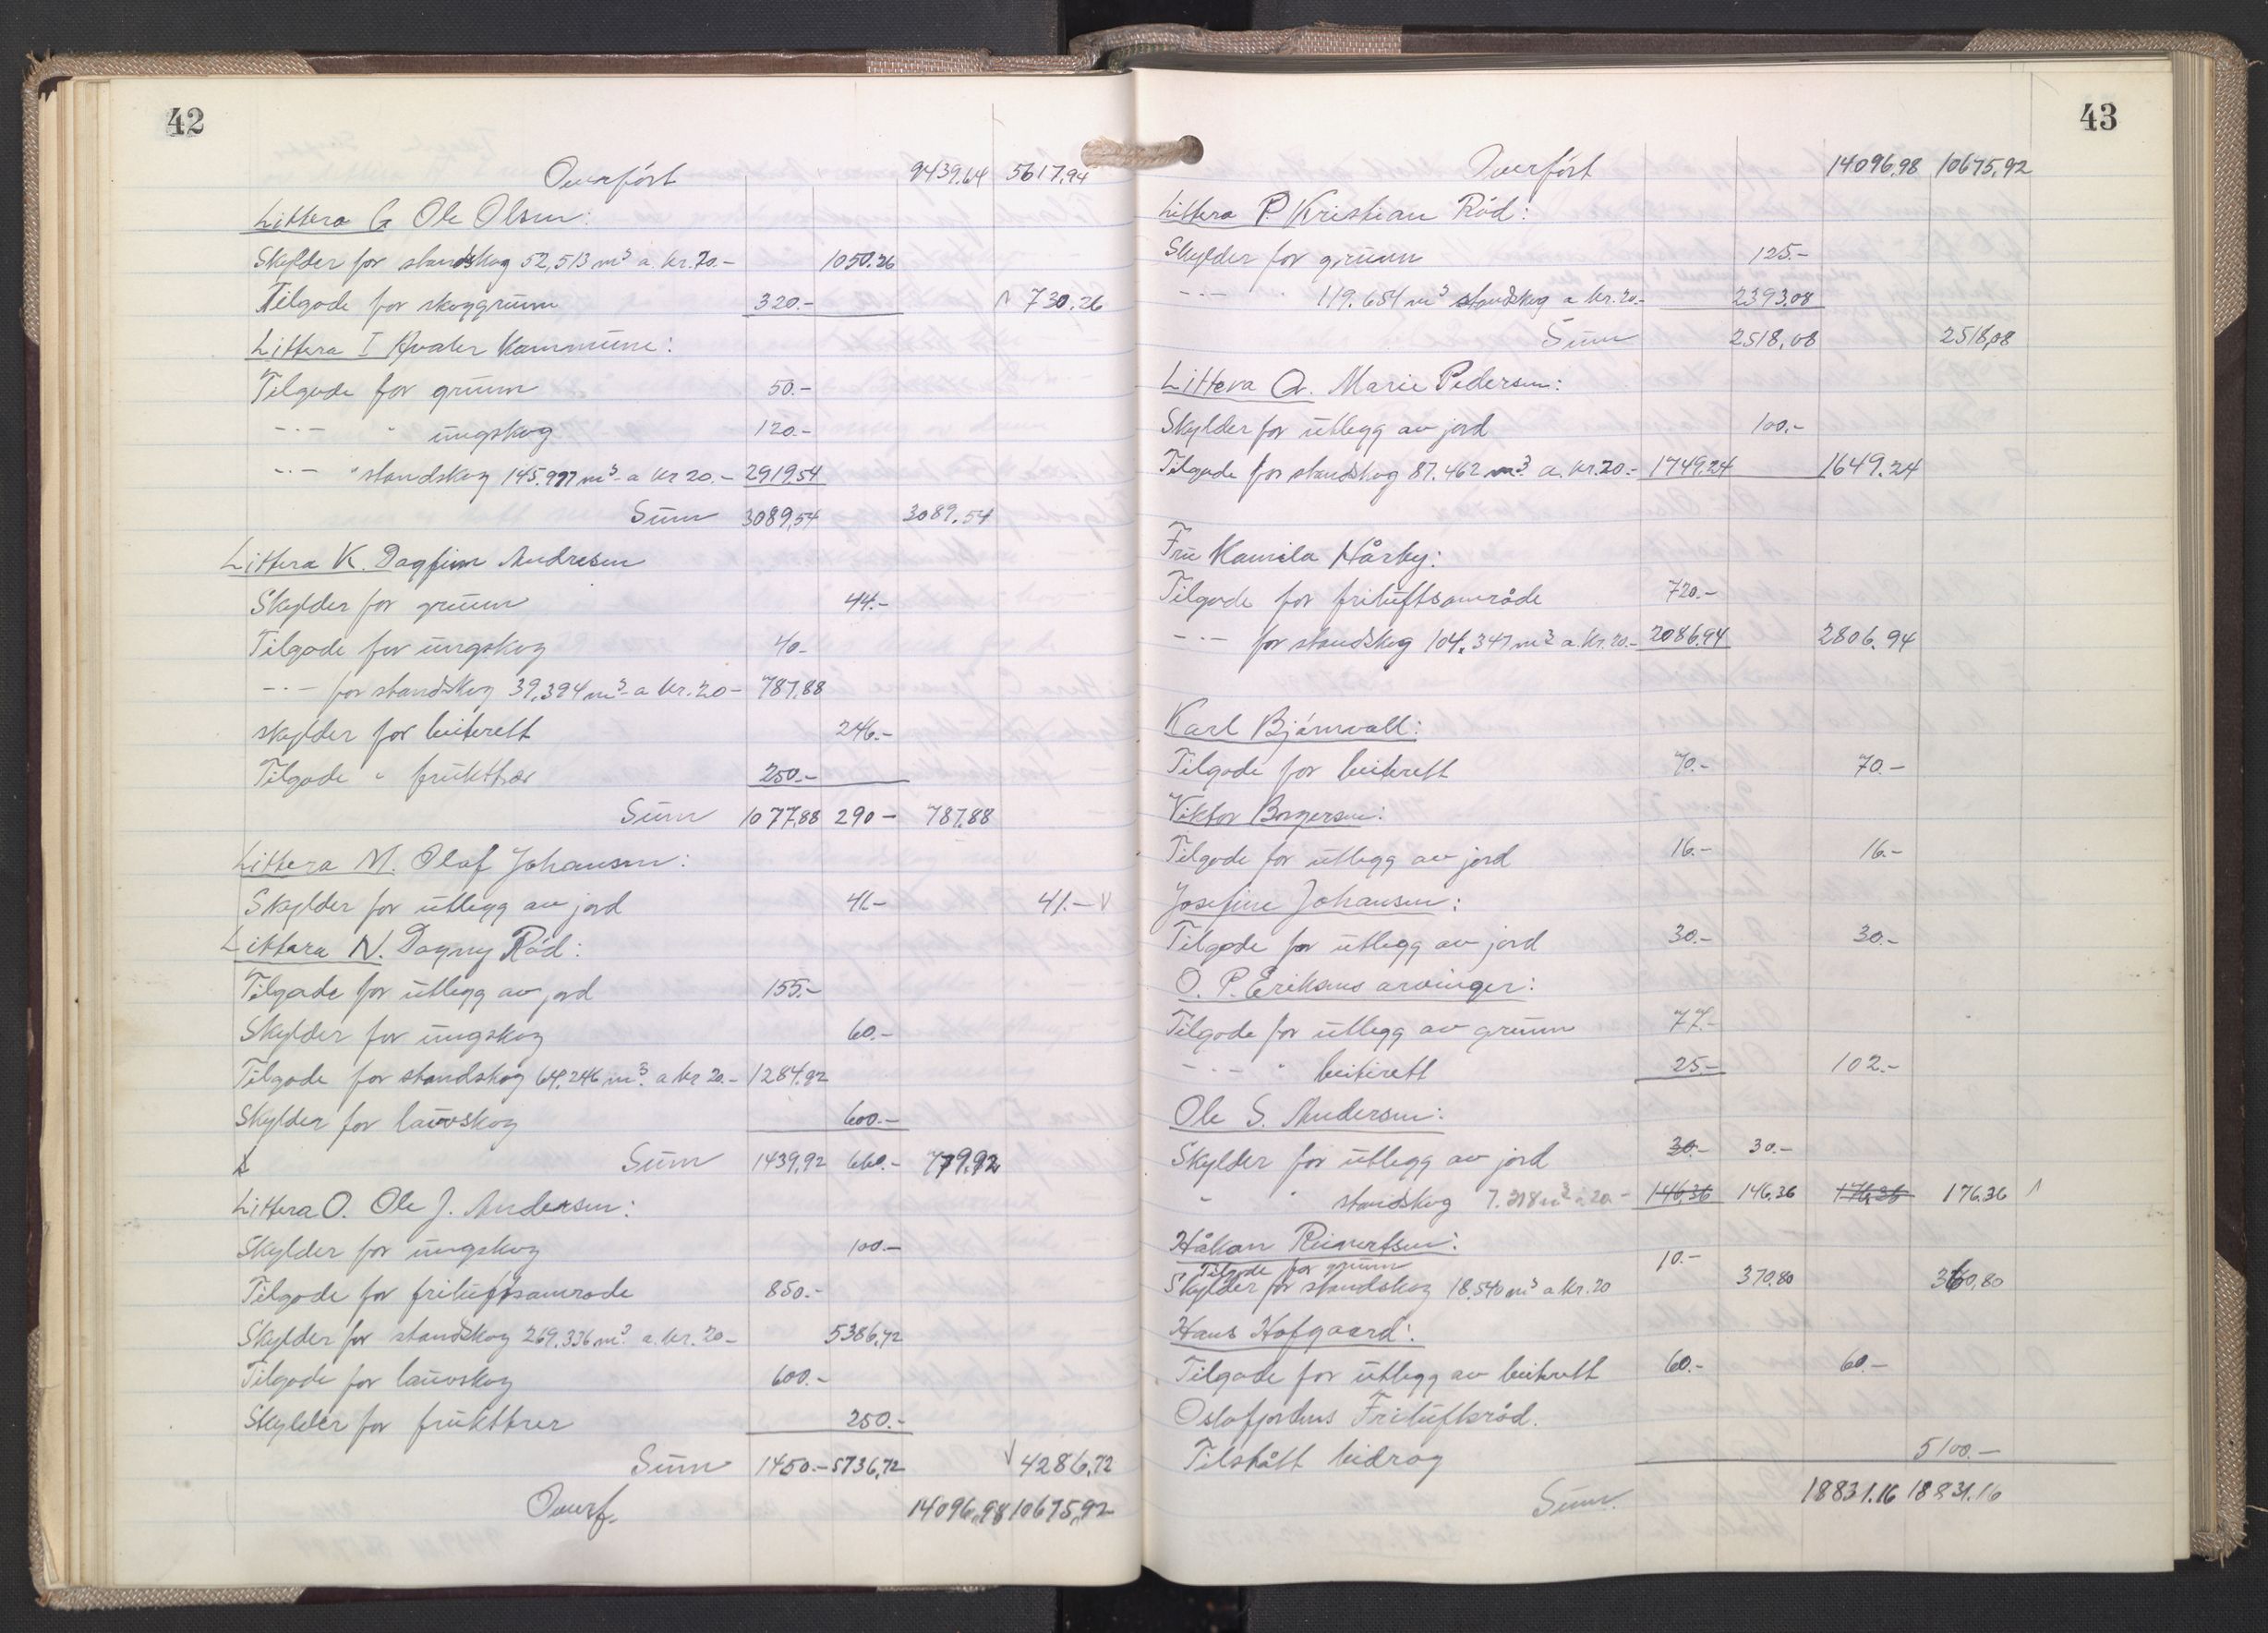 42
Overført 9439,64 5617,94
Littera G Ole Olsen:
Skylder for standskog 52,513 m³ a. kr. 20.- 1050.26
Tilgode for skoggrunn 320.- 730.26
Littera I Hvaler Kommune:
Tilgode for grunn 50.-
-"- " ungskog 120.-
-"- " standskog 145.977 m³ a kr 20.- 2919,54
Sum 3089,54 3089.54
Littera K. Dagfinn Andresen
Skylder for grunn 44.-
Tilgode for ungskog 40.-
-"- for standskog 39,394 m³ a kr. 20- 787,88
skylder for beiterett 246.-
Tilgode " frukttrær 250.-
Sum 1077,88 290- 787,88
Littera M. Olaf Johansen:
Skylder for utlegg av jord 41.- 41.-
Littara N. Dagny Rød:
Tilgode for utlegg av jord 155.-
Skylder for ungskog 60.-
Tilgode for standskog 64,246 m³ a kr 20.- 1284,92
Skylder for lauvskog 600.-
L Sum 1439,92 660.- 779,92
Littera O. Ole J. Andersen:
Skylder for ungskog 100.-
Tilgode for friluftsamrode 850.-
Skylder for standskog 269,336 m³ a. kr. 20- 5386,72
Tilgode for lauvskog 600.-
Skylder for frukttrer 250.-
Sum 1450.- 5736,72 4286,72
Overf. 14096,98 10675,92
43
Overført 14096,98 10675,92
Littera P. Kristian Rød:
Skylder for grunn 125.-
-"- " 119.654 m³ standskog a kr. 20.- 2393,08
Sum 2518,08 2518,08
Littera Q. Marie Pedersen:
Skylder for utlegg av jord 100.-
Tilgode for standskog 87.462 m³ a. kr. 20.- 1749,24 1649.24
Fru Kamila Hårby:
Tilgode for friluftsområde 720.-
-"- for standskog 104,347 m³ a. kr. 20.- 2086,94 2806,94
Karl Bjørnvall:
Tilgode for beiterett 70.- 70.-
Viktor Borgersen:
Tilgode for utlegg av jord 16.- 16.-
Josefine Johansen:
Tilgode for utlegg av jord 30.- 30.-
O. P. Eriksens arvinger:
Tilgode for utlegg av grunn 77.-
-"- " beiterett 25- 102.-
Ole S. Andersen:
Skylder for utlegg av jord 30.- 30.-
" " standskog 7.318 m³ à 20.- 146,36 146,36 176,36 176,36
Håkon Reinertsen:
Tilgode for grunn 10.-
Skylder for standskog 18,540 m³ a kr. 20 370,80 360,80
Hans Hofgaard:
Tilgode for utlegg av beiterett 60.- 60.-
Oslofjordens Friluftsråd.
Tilstått bidrag 5100.-
Sum. 18831.16 18831.16